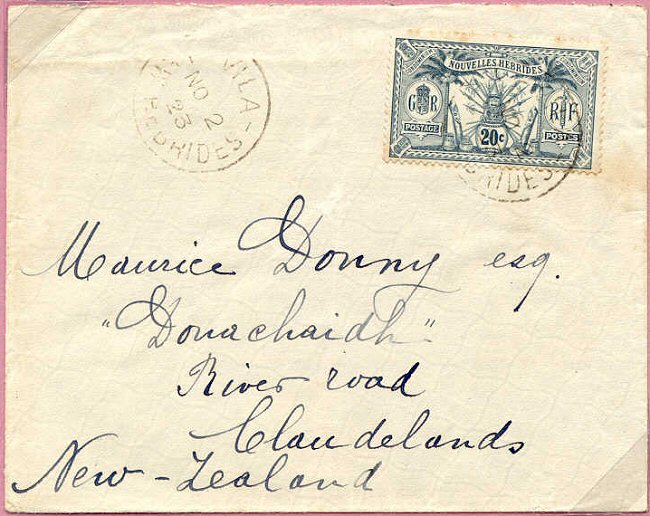 VILA-
NO 2
23
HEBRIDES
NOUVELLES HEBRIDES
G R
R F
POSTAGE
20c
POSTES
Maurice Donny esq.
"Donachaidh"
River road
Claudelands
New-Zealand